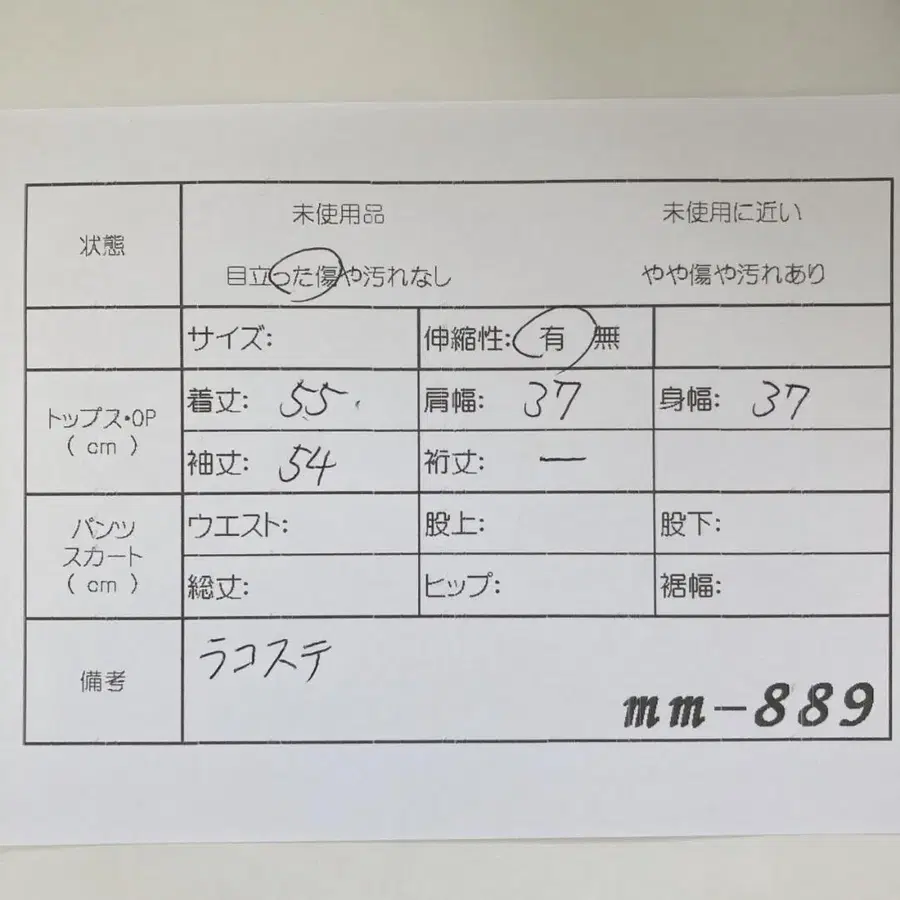 状態
未使用品 未使用に近い
目立った傷や汚れなし やや傷や汚れあり
サイズ: 伸縮性: 有 無
トップス・OP
( cm )
着丈: 55 肩幅: 37 身幅: 37
袖丈: 54 裄丈: ー
パンツ
スカート
( cm )
ウエスト: 股上: 股下:
総丈: ヒップ: 裾幅:
備考
ラコステ
mm-889